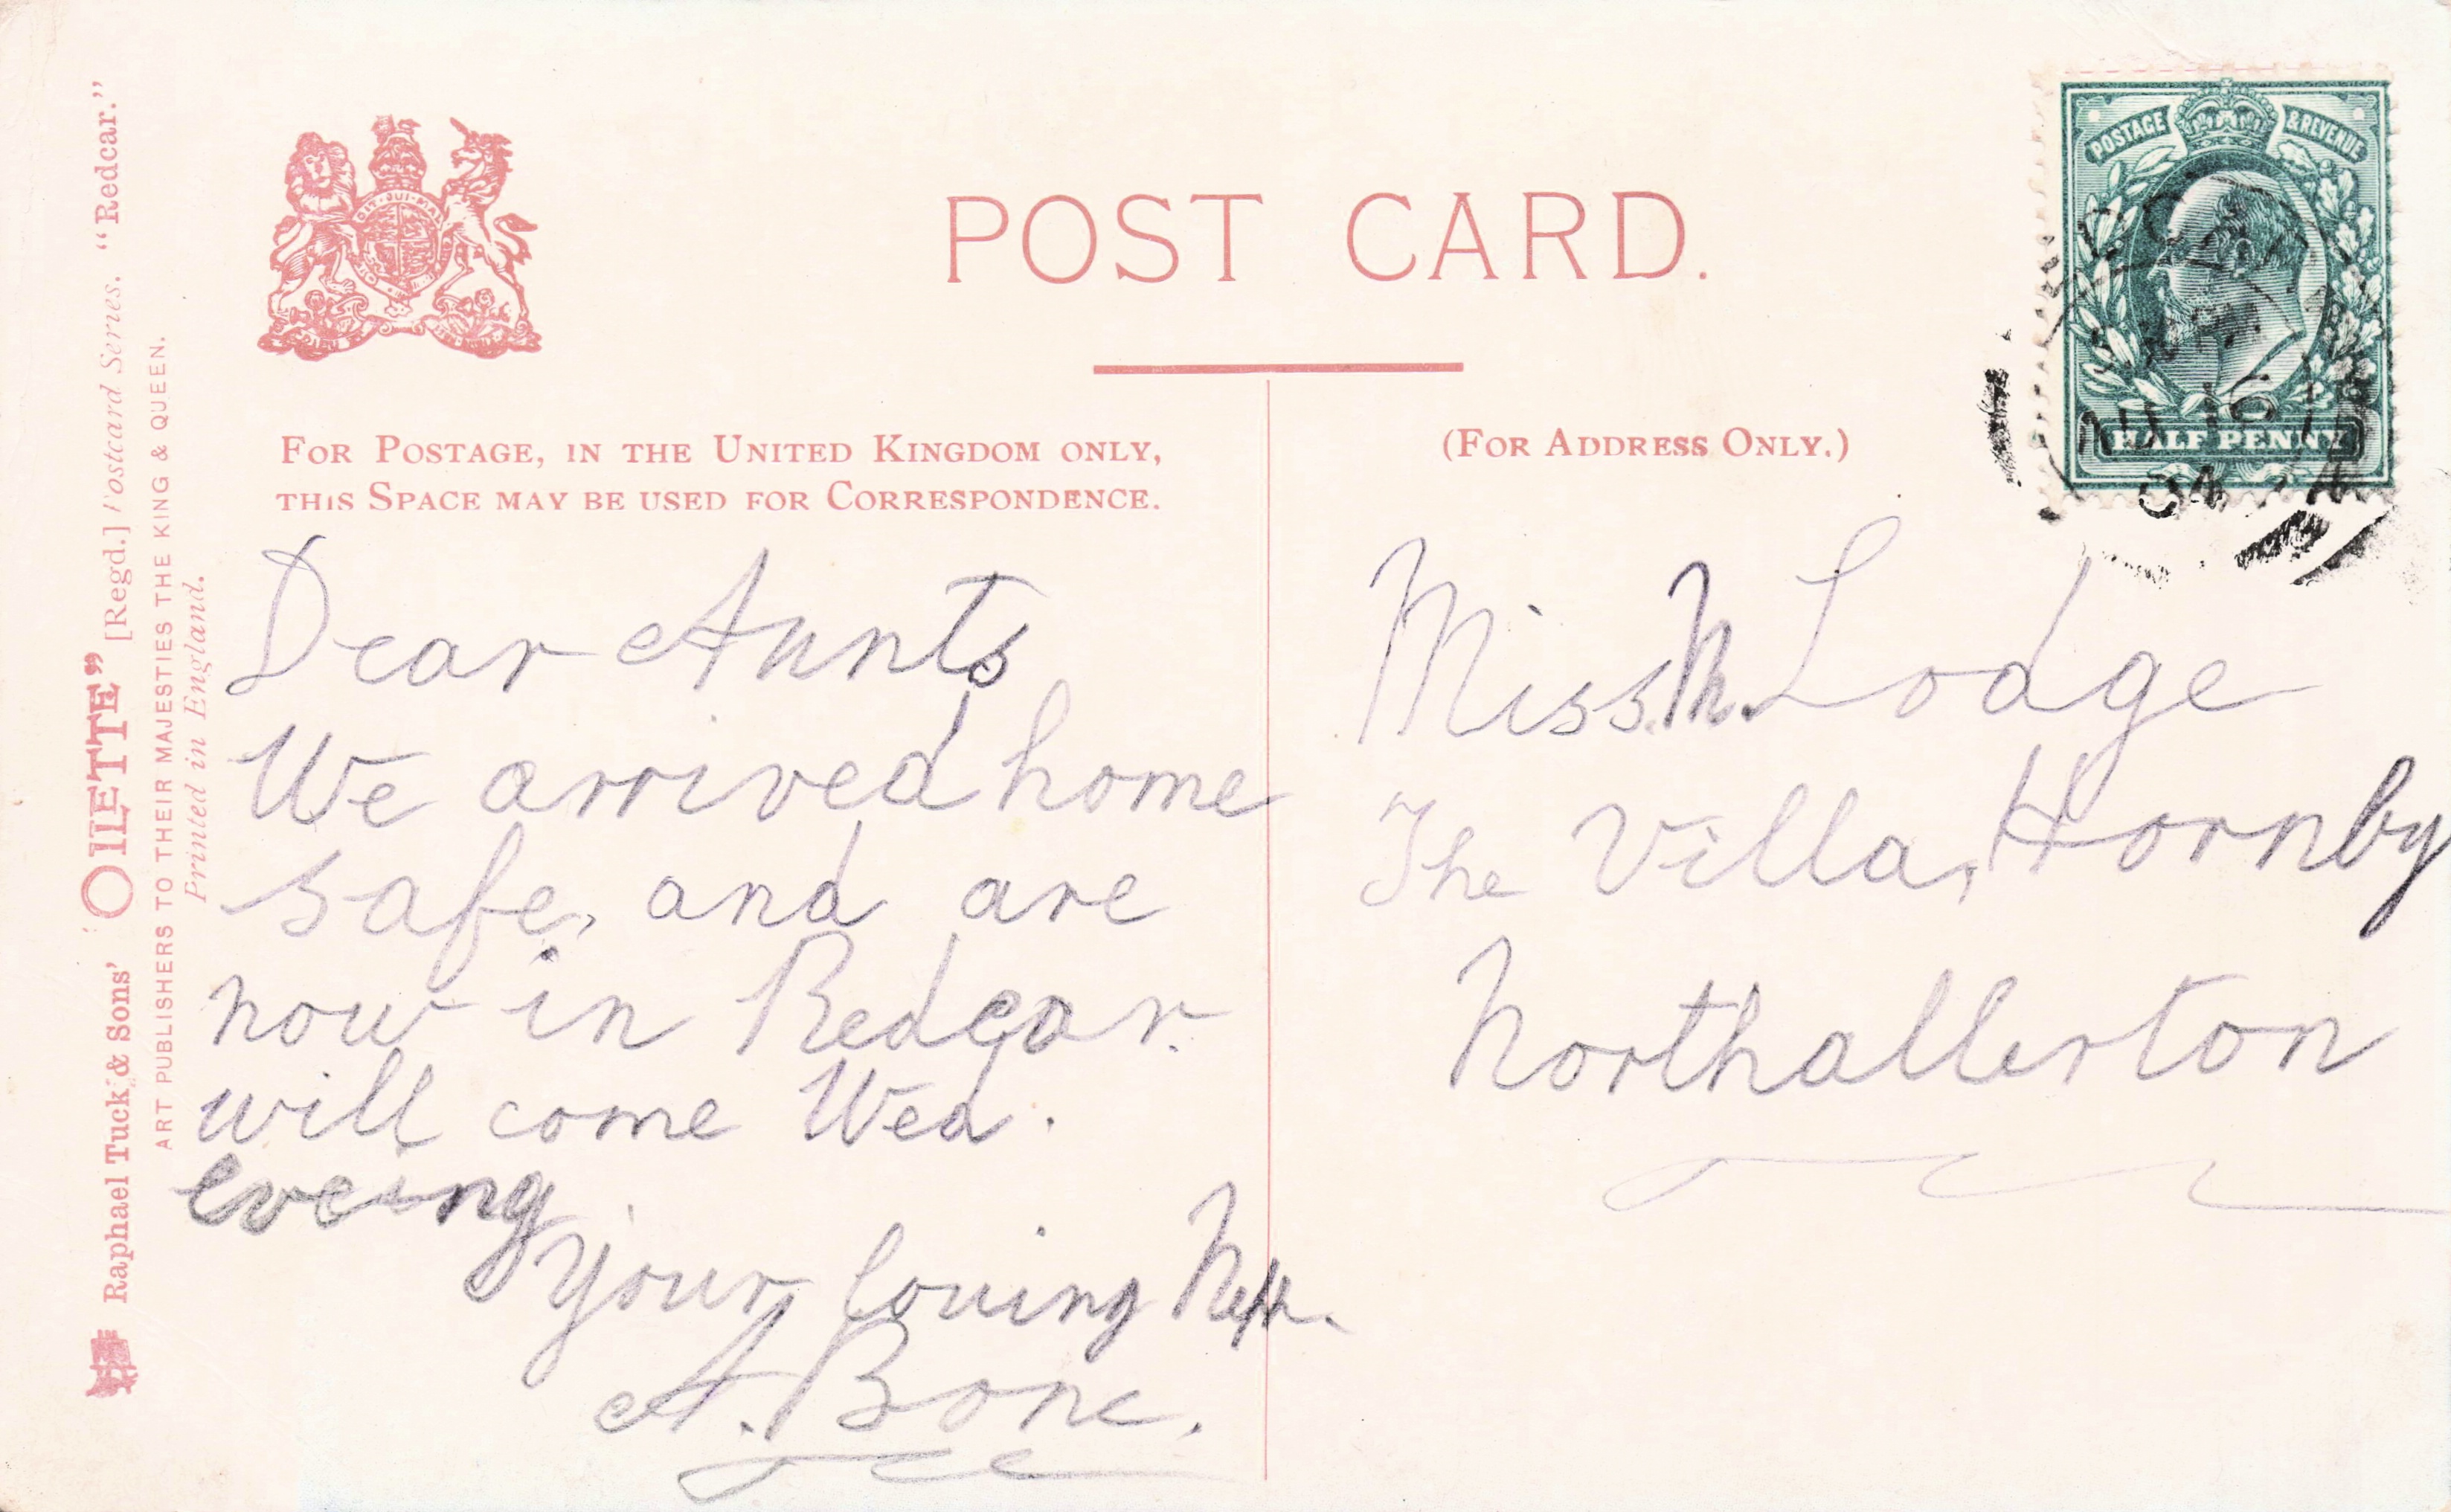 POST CARD.
FOR POSTAGE, IN THE UNITED KINGDOM ONLY,
THIS SPACE MAY BE USED FOR CORRESPONDENCE.
(FOR ADDRESS ONLY.)
POSTAGE & REVENUE
HALF PENNY
16
04
Dear Aunts
We arrived home
safe, and are
now in Redcar.
will come Wed.
eveing
Your loving Neph.
A. Bone.
Miss. M. Lodge
The Villa, Hornby
Northallerton
Raphael Tuck & Sons' "OILETTE" [Regd.] Postcard Series. "Redcar."
ART PUBLISHERS TO THEIR MAJESTIES THE KING & QUEEN.
Printed in England.